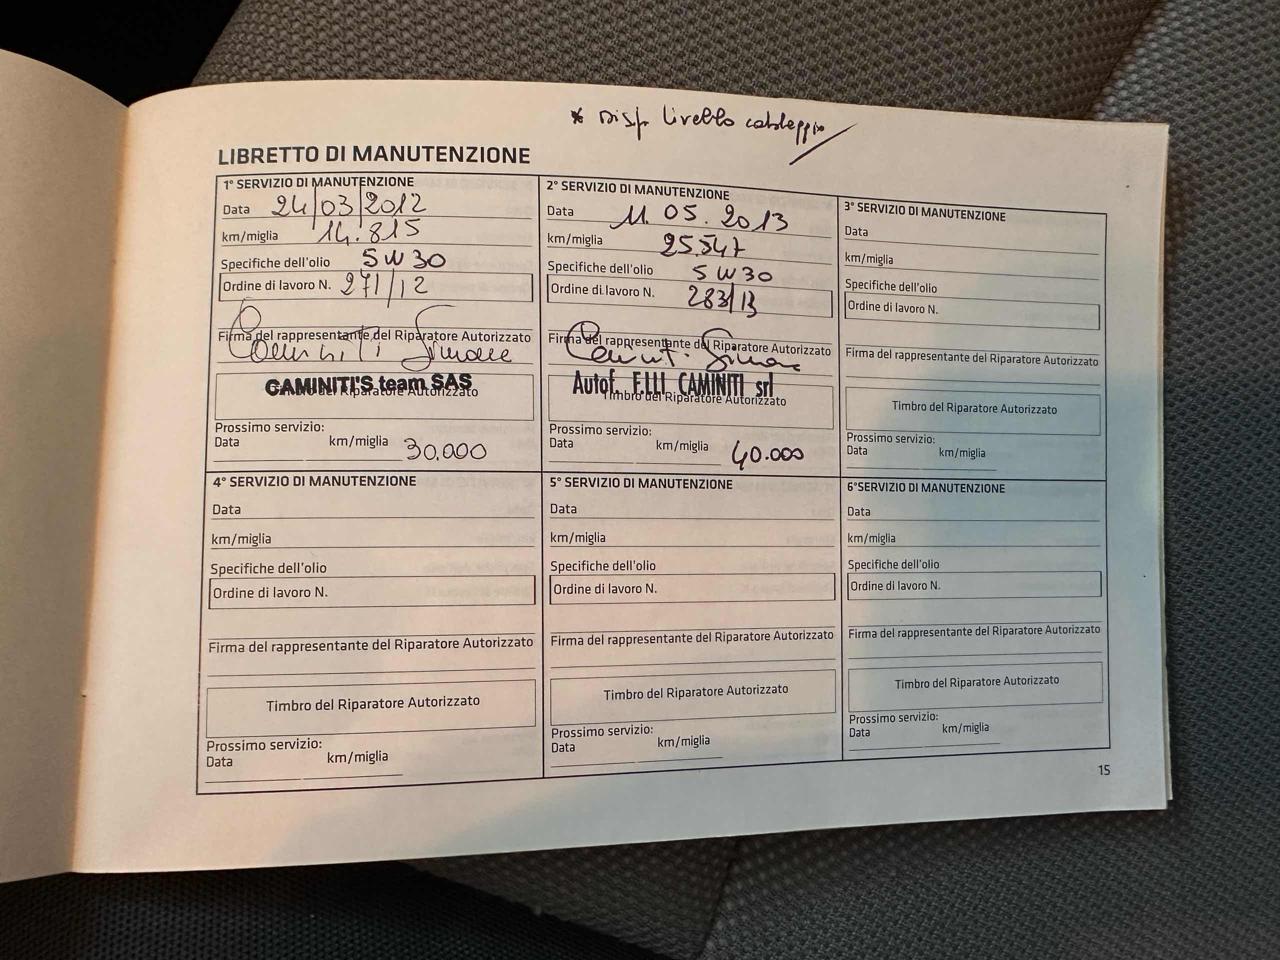 * Disp. livello
LIBRETTO DI MANUTENZIONE
1° SERVIZIO DI MANUTENZIONE
Data 24/03/2012
km/miglia 14.815
Specifiche dell'olio 5W30
Ordine di lavoro N. 271/12
Firma del rappresentante del Riparatore Autorizzato
Caminiti Simone
CAMINITI'S team SAS
Timbro del Riparatore Autorizzato
Prossimo servizio:
Data km/miglia 30.000
2° SERVIZIO DI MANUTENZIONE
Data 11.05.2013
km/miglia 25.547
Specifiche dell'olio 5W30
Ordine di lavoro N. 283/13
Firma del rappresentante del Riparatore Autorizzato
Caminiti Simone
Autof. F.LLI CAMINITI srl
Timbro del Riparatore Autorizzato
Prossimo servizio:
Data km/miglia 40.000
3° SERVIZIO DI MANUTENZIONE
Data
km/miglia
Specifiche dell'olio
Ordine di lavoro N.
Firma del rappresentante del Riparatore Autorizzato
Timbro del Riparatore Autorizzato
Prossimo servizio:
Data km/miglia
4° SERVIZIO DI MANUTENZIONE
Data
km/miglia
Specifiche dell'olio
Ordine di lavoro N.
Firma del rappresentante del Riparatore Autorizzato
Timbro del Riparatore Autorizzato
Prossimo servizio:
Data km/miglia
5° SERVIZIO DI MANUTENZIONE
Data
km/miglia
Specifiche dell'olio
Ordine di lavoro N.
Firma del rappresentante del Riparatore Autorizzato
Timbro del Riparatore Autorizzato
Prossimo servizio:
Data km/miglia
6°SERVIZIO DI MANUTENZIONE
Data
km/miglia
Specifiche dell'olio
Ordine di lavoro N.
Firma del rappresentante del Riparatore Autorizzato
Timbro del Riparatore Autorizzato
Prossimo servizio:
Data km/miglia
15